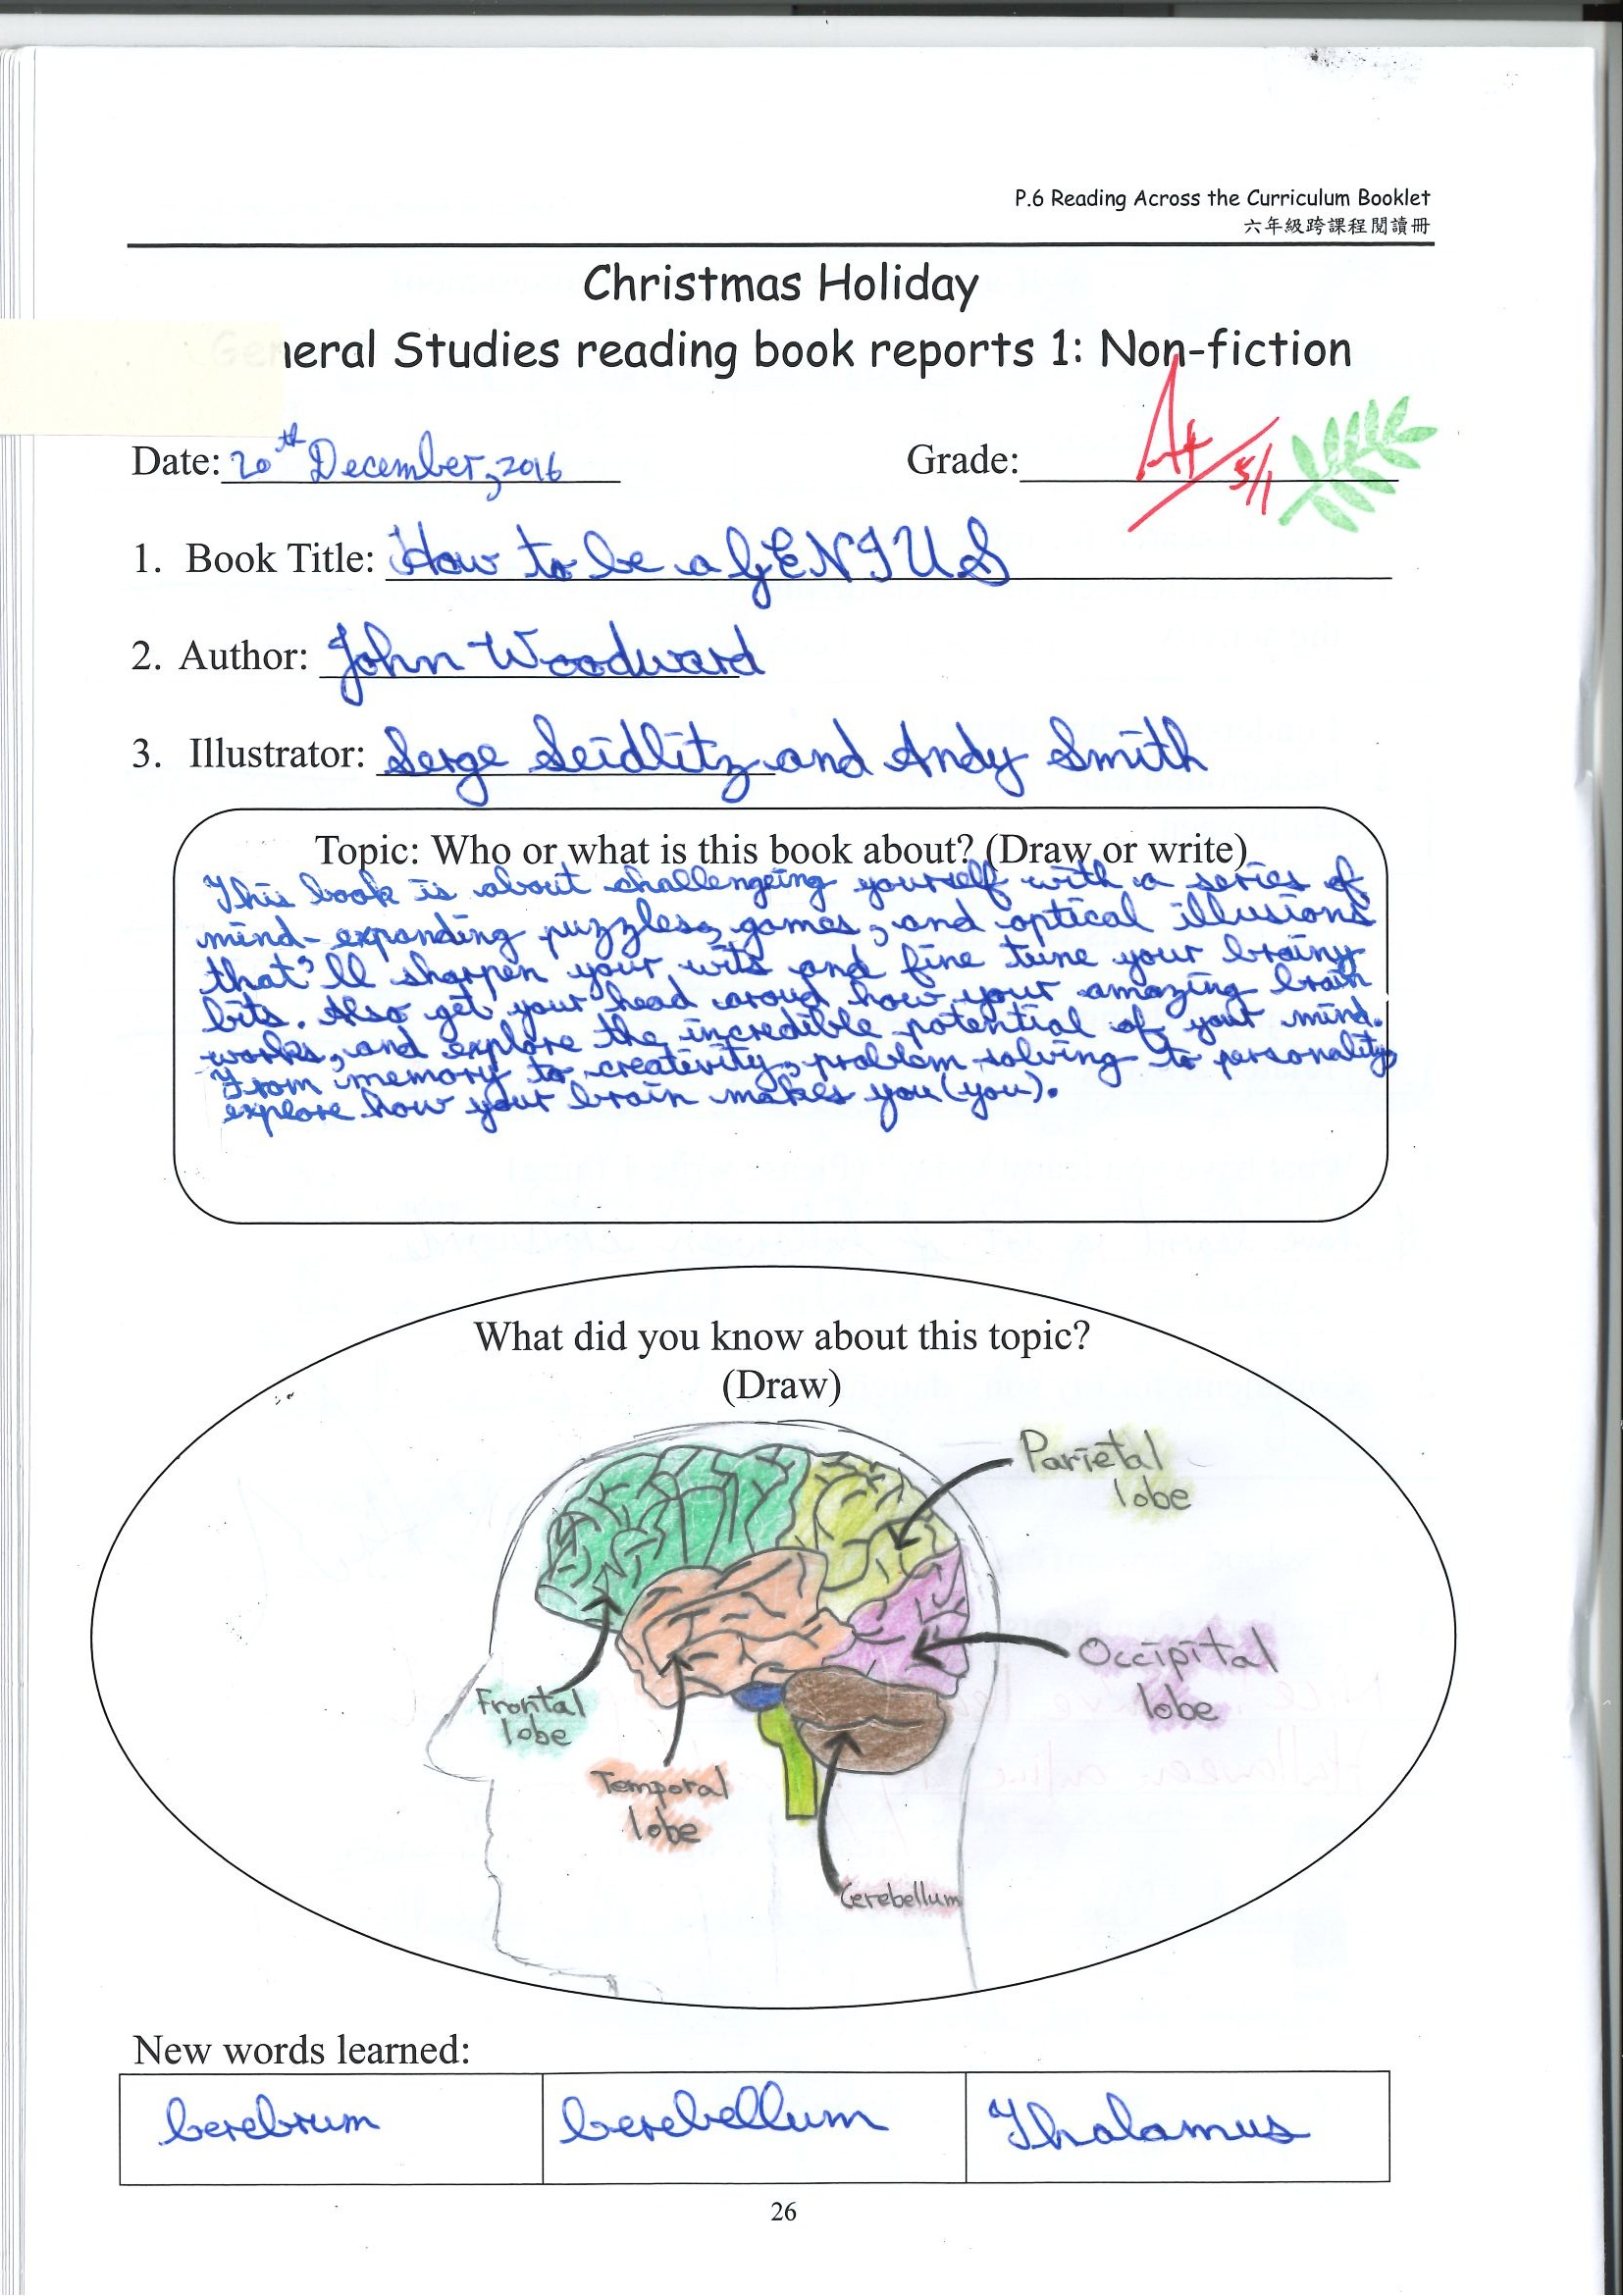 P.6 Reading Across the Curriculum Booklet
六年級跨課程閱讀冊
Christmas Holiday
General Studies reading book reports 1: Non-fiction
Date: 20th December, 2016
Grade: A+ 5/1
1. Book Title: How to be a GENIUS
2. Author: John Woodward
3. Illustrator: Serge Seidlitz and Andy Smith
Topic: Who or what is this book about? (Draw or write)
This book is about challengeing yourself with a series of
mind-expanding puzzles, games, and optical illusions
that'll sharpen your wits and fine tune your brainy
bits. Also get your head aroud how your amazing brain
works, and explore the incredible potential of your mind.
From memory to creativity, problem-solving to personality,
explore how your brain makes you (you).
What did you know about this topic?
(Draw)
Parietal
lobe
Occipital
lobe
Frontal
lobe
Temporal
lobe
Cerebellum
New words learned:
Cerebrum
Cerebellum
Thalamus
26